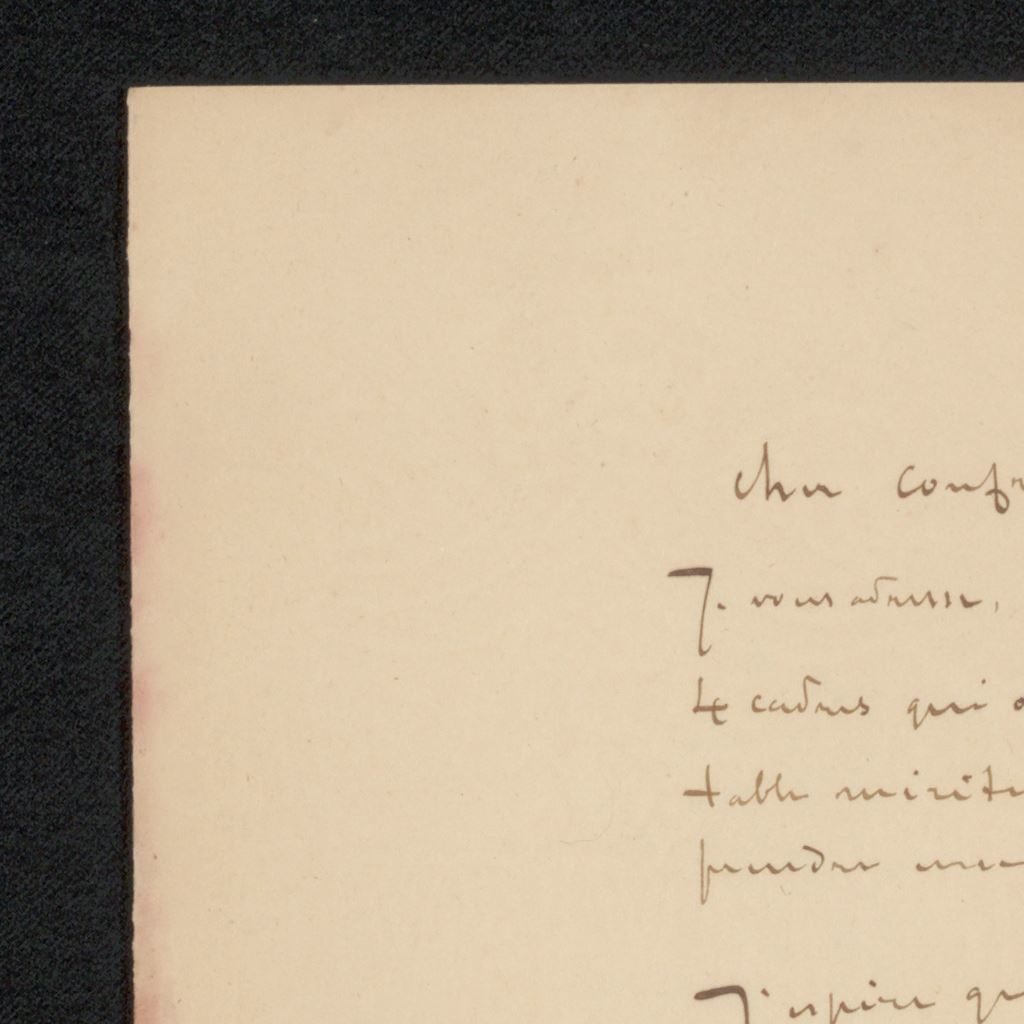 Cher confr
Je vous adresse,
4 cadres qui
table mérite
prendre une
J'espère qu